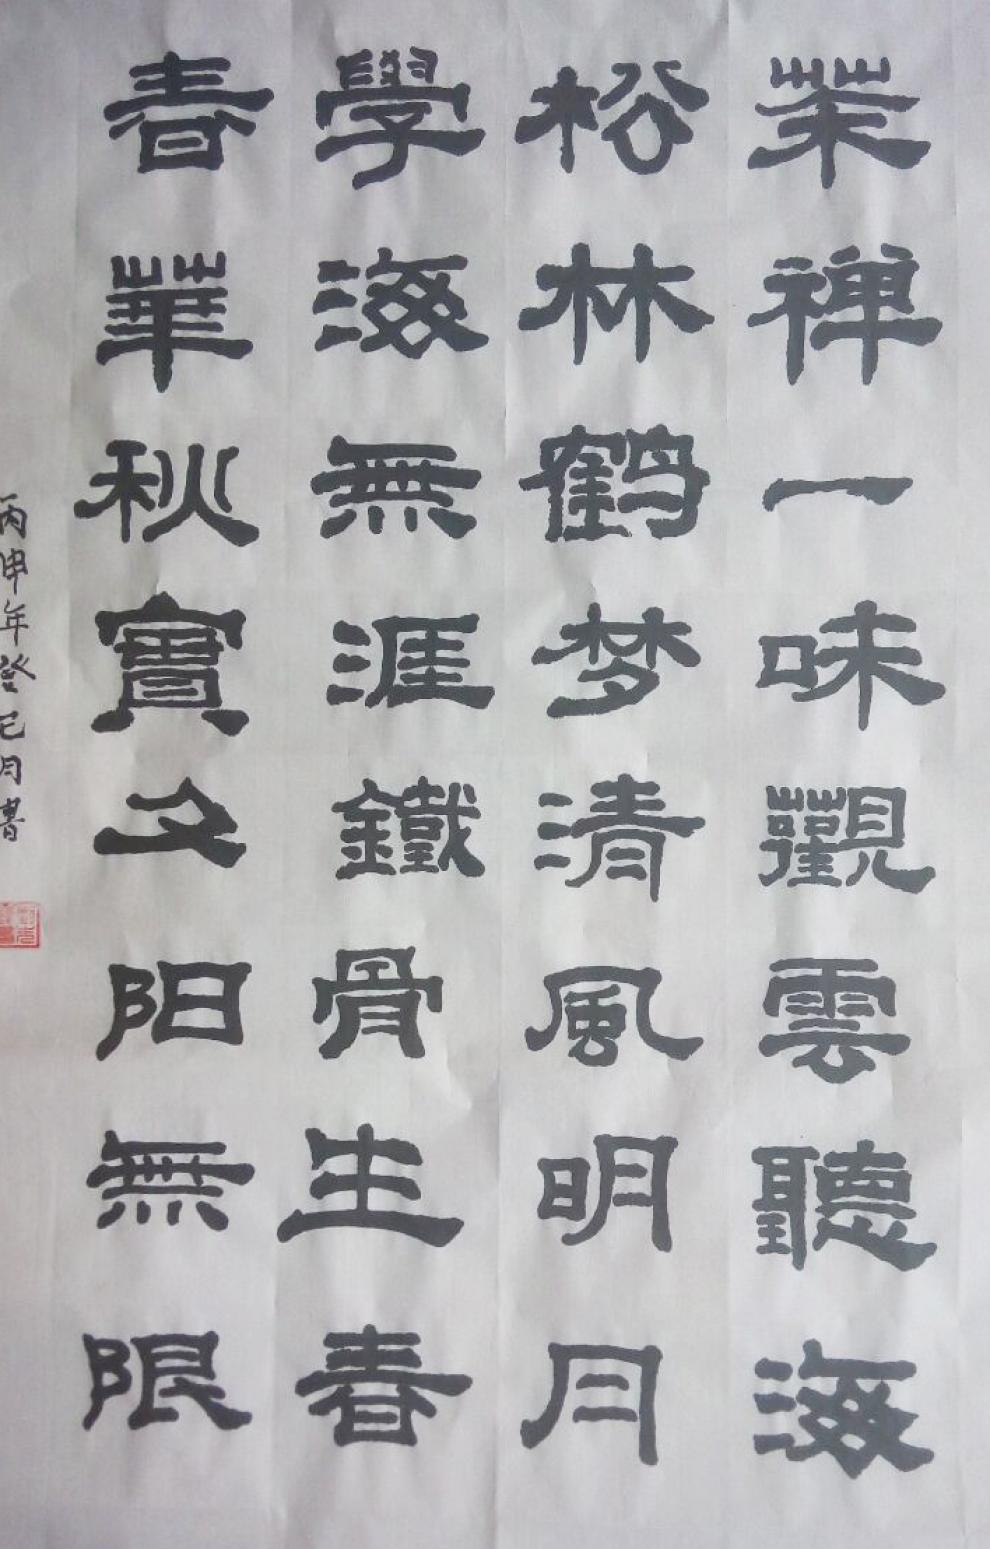 茶禅一味觀雲聽海
松林鹤梦清風明月
學海無涯鐵骨生春
春華秋實夕阳無限
丙申年癸巳月書